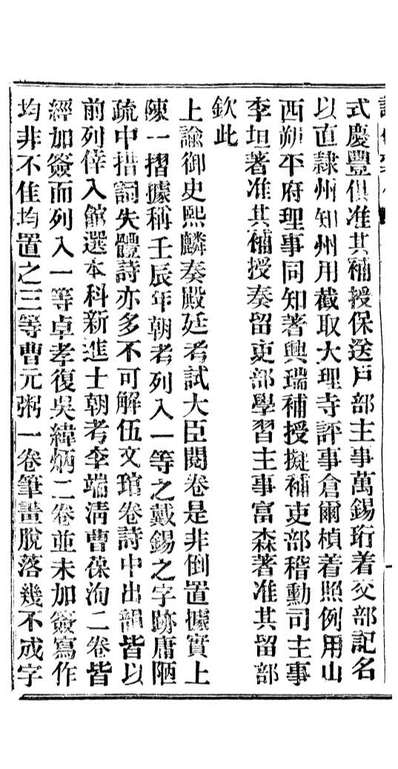 式慶豐俱准其補授保送戶部主事萬錫珩着交部記名
以直隸州知州用截取大理寺評事倉爾楨着照例用山
西朔平府理事同知著興瑞補授擬補吏部稽勳司主事
李坦著准其補授奏留吏部學習主事富森著准其留部
欽此
上諭御史熙麟奏殿廷考試大臣閱卷是非倒置據實上
陳一摺據稱壬辰年朝考列入一等之戴錫之字跡庸陋
疏中措詞失體詩亦多不可解伍文琯卷詩中出韻皆以
前列倖入館選本科新進士朝考李端淸曹葆洵二卷皆
經加簽而列入一等卓孝復吳緯炳二卷並未加簽寫作
均非不佳均置之三等曹元弼一卷筆畫脫落幾不成字